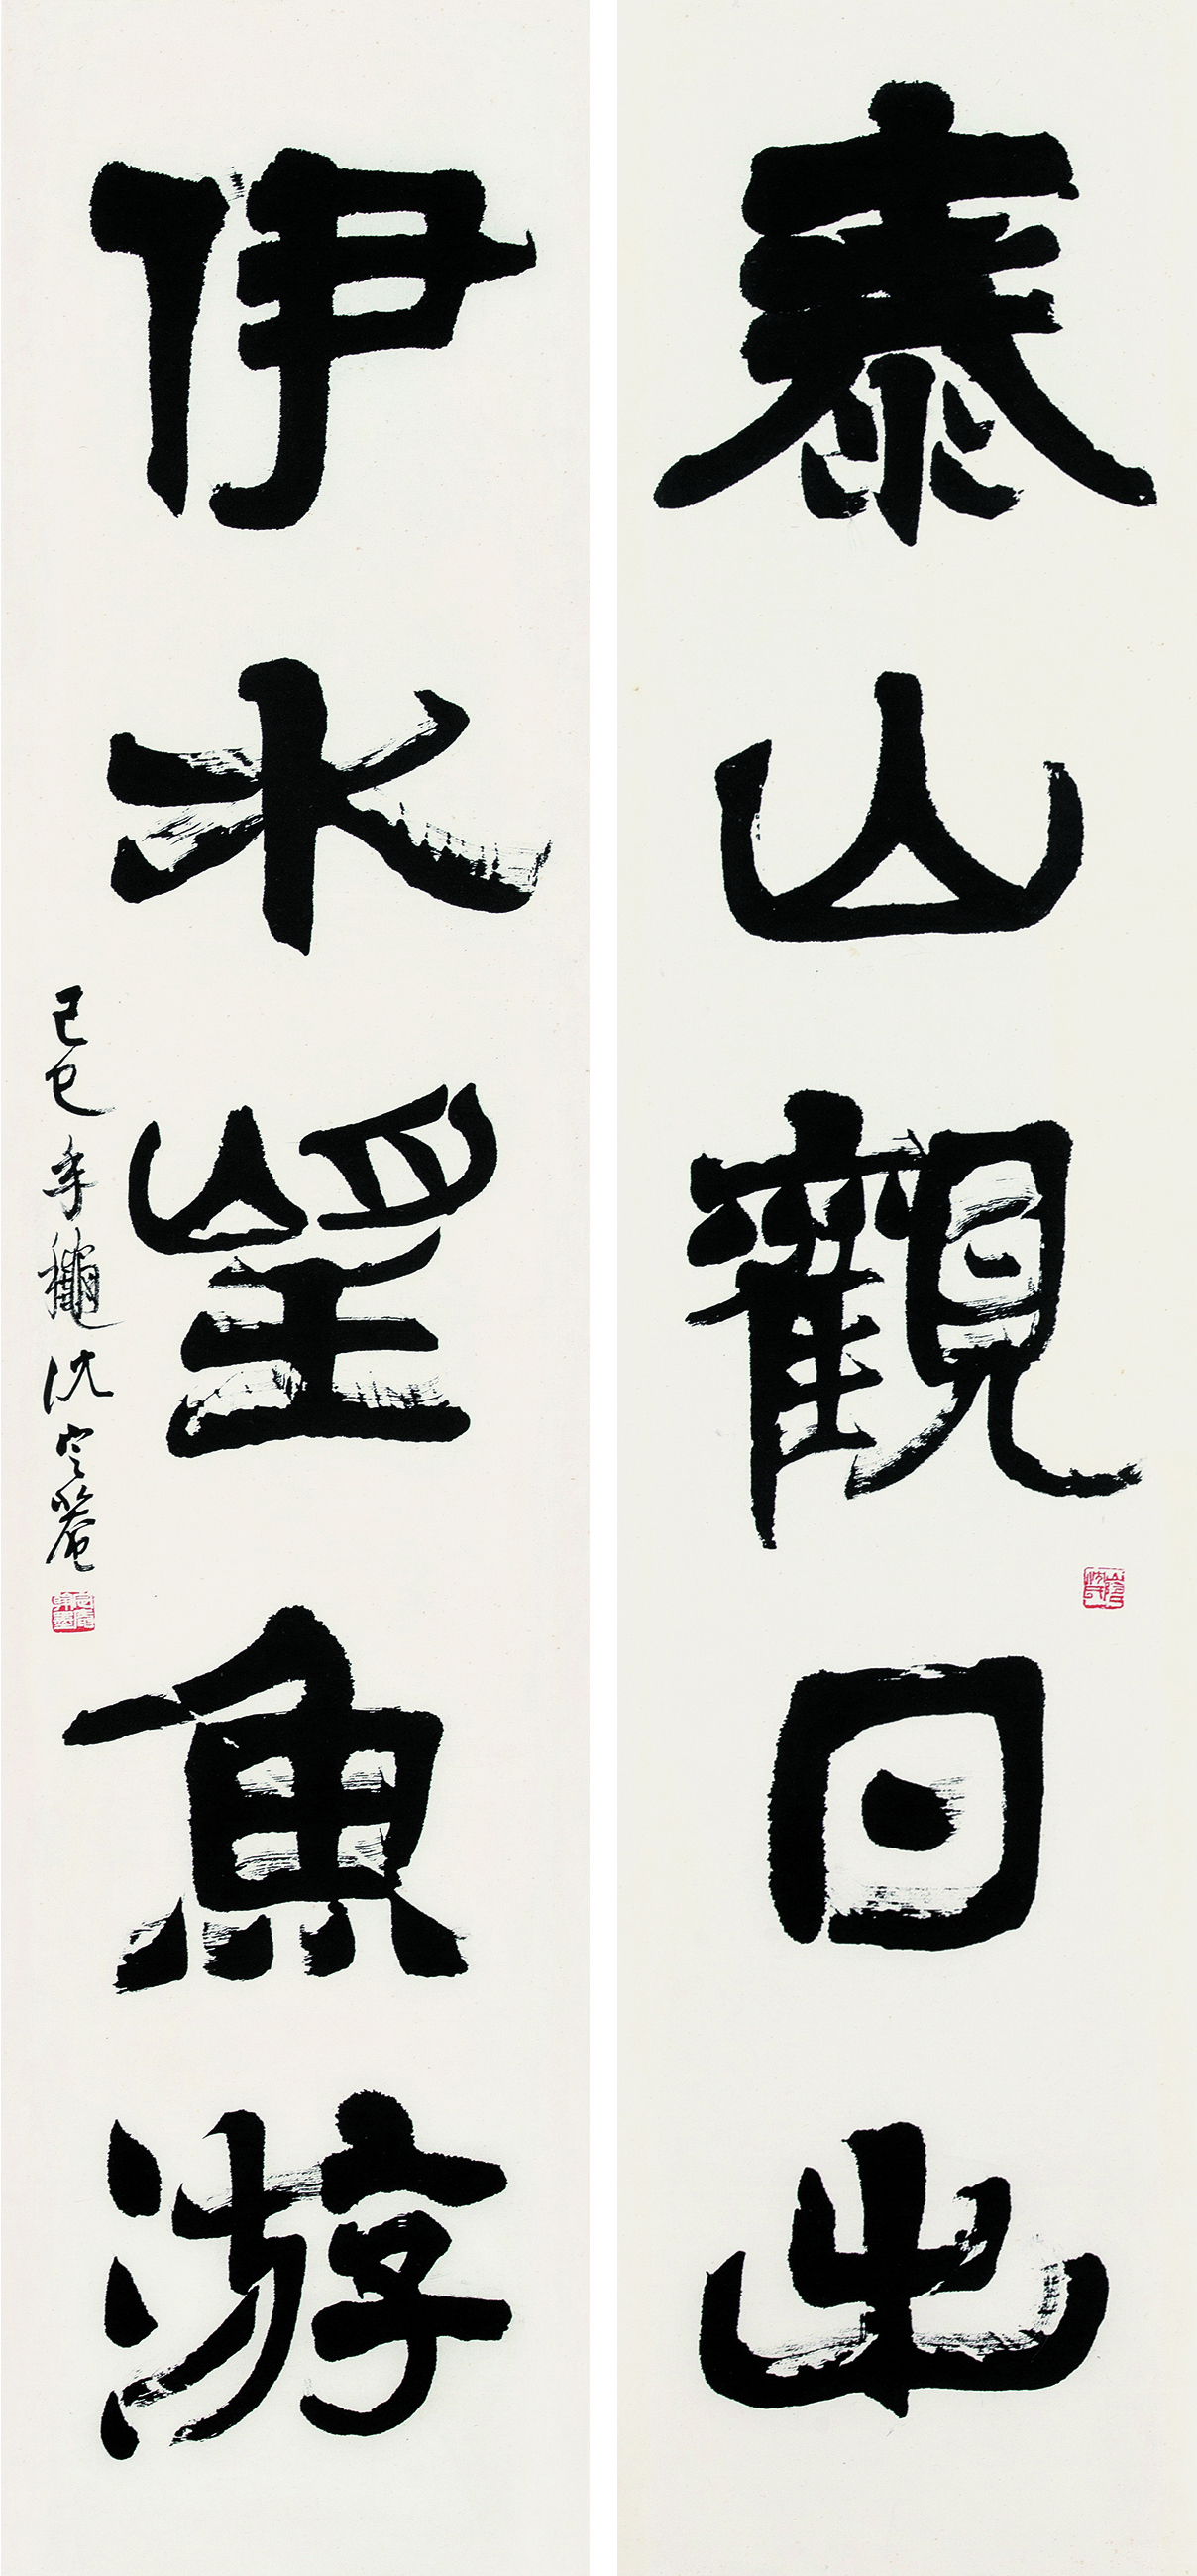 泰山觀日出
伊水望魚游
己巳年龝沈定盦